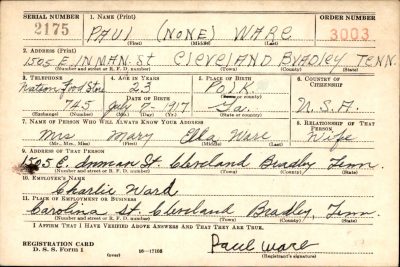 SERIAL NUMBER 1. NAME (Print) ORDER NUMBER
2175 PAUL (NONE) WARE 3003
(First) (Middle) (Last)
2. ADDRESS (Print)
1505 E. INMAN St. CLEVELAND BRADLEY TENN.
(Number and street or R. F. D. number) (Town) (County) (State)
3. TELEPHONE 4. AGE IN YEARS 5. PLACE OF BIRTH 6. COUNTRY OF CITIZENSHIP
Watson Food Store 23 POLK
DATE OF BIRTH (Town or county)
745 July 9 - 1917 Ga. U.S.A.
(Exchange) (Number) (Mo.) (Day) (Yr.) (State or country)
7. NAME OF PERSON WHO WILL ALWAYS KNOW YOUR ADDRESS 8. RELATIONSHIP OF THAT PERSON
Mrs Mary Ella Ware Wife
(Mr., Mrs., Miss) (First) (Middle) (Last)
9. ADDRESS OF THAT PERSON
1505 E. Inman St. Cleveland Bradley Tenn.
(Number and street or R. F. D. number) (Town) (County) (State)
10. EMPLOYER'S NAME
Charlie Ward
11. PLACE OF EMPLOYMENT OR BUSINESS
Carolina St. Cleveland Bradley, Tenn.
(Number and street or R. F. D. number) (Town) (County) (State)
I AFFIRM THAT I HAVE VERIFIED ABOVE ANSWERS AND THAT THEY ARE TRUE.
Paul Ware
REGISTRATION CARD
D. S. S. FORM 1 (over) 16-17105 (Registrant's signature)